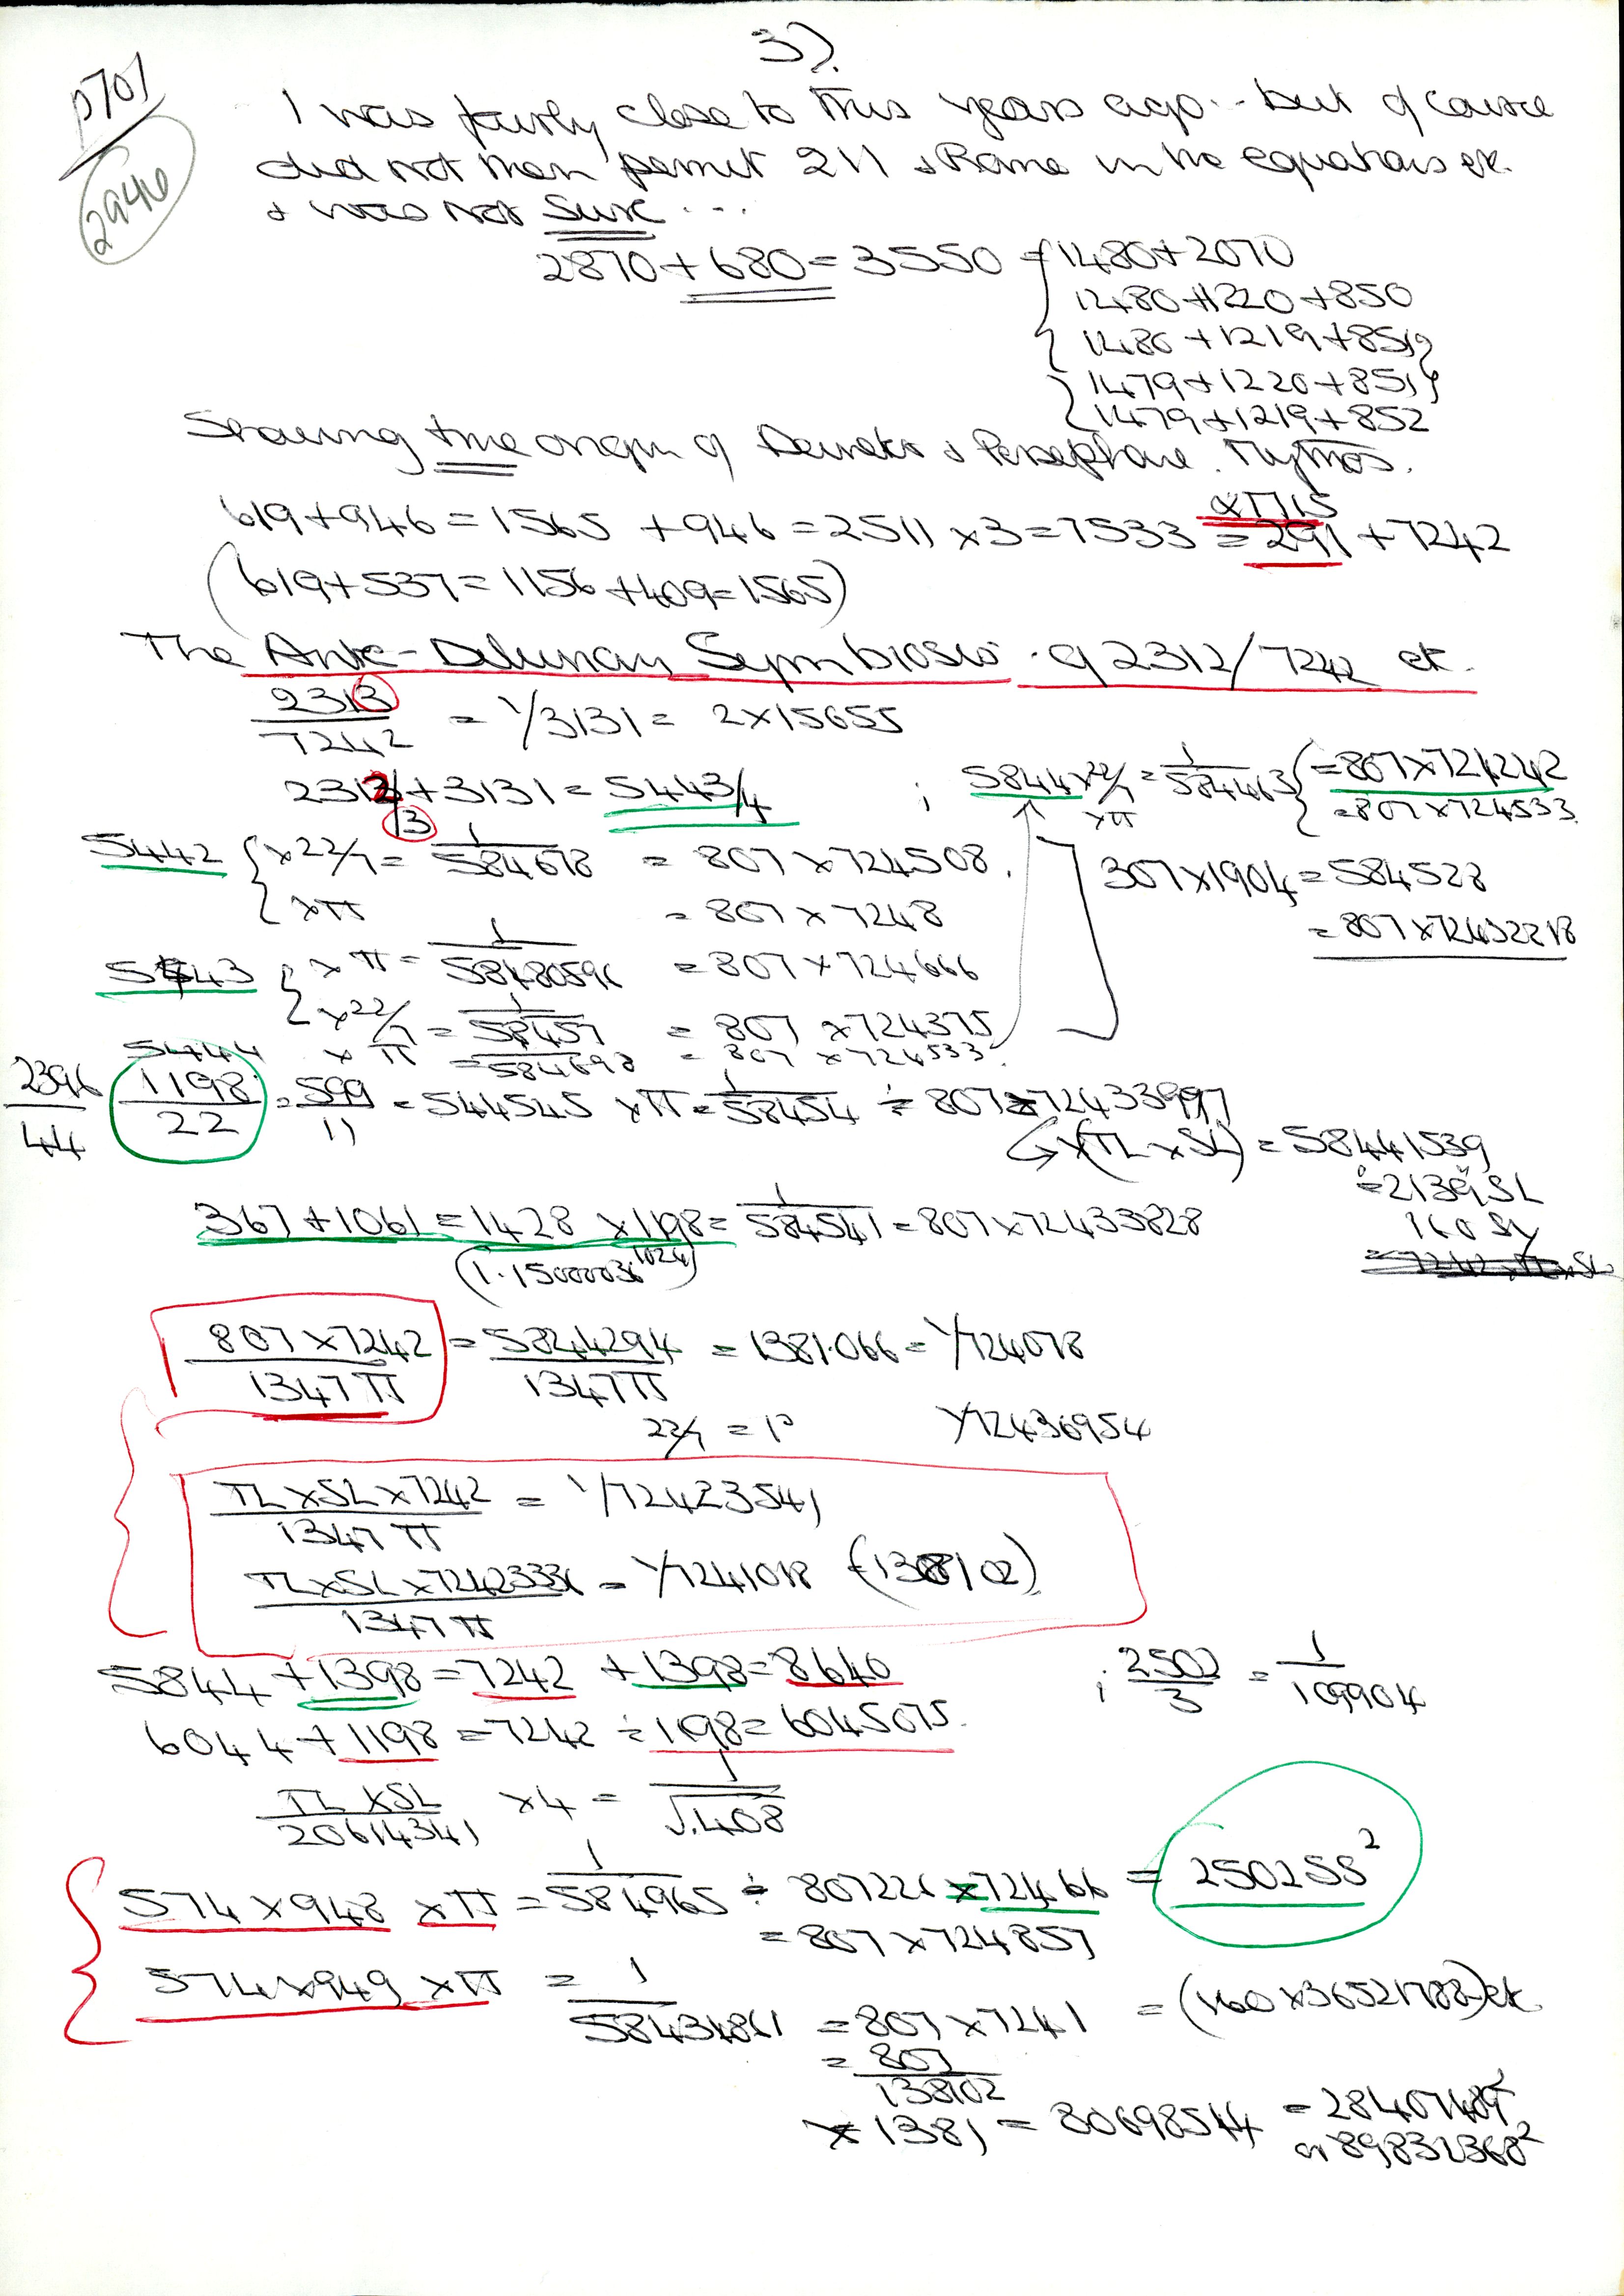 3).
p701
2946
I was fairly close to this years ago... but of course
did not then permit 211 & Rome in the equations etc.
& was not sure ...
2870 + 680 = 3550 = 1480 + 2070
1480 + 1220 + 850
1480 + 1219 + 851
1479 + 1220 + 851
1479 + 1219 + 852
Showing true origin of Demeter & Persephone. Mythos.
619 + 946 = 1565 + 946 = 2511 x 3 = 7533 = 291 + 7242
(619 + 537 = 1156 + 409 = 1565)
The Ante-Deluvian Symbiosis. q 2312/7242 etc.
2313/7242 = 1/3131 = 2 x 15655
2312/13 + 3131 = 5443/4 ; 5844 x 22/7 xπ = 1/584463 { = 807 x 724242
= 807 x 724533
5442 { x 22/7 = 1/584678 = 807 x 724508.
xπ = 807 x 7248
307 x 1904 = 584528
= 807 x 72432218
5443 { xπ = 1/58480596 = 807 x 724666
x 22/7 = 1/58457 = 807 x 724375
5444 xπ = 1/584698 = 807 x 724533
2396/44 1198/22 = 599/11 = 544545 xπ = 1/58454 ÷ 807 = 72433997
x(TL x SL) = 58441539
= 2139 SL
160 Sy
367 + 1061 = 1428 x 1198 = 1/584541 = 807 x 72433828
(1.15000036 1024)
807 x 7242 / 1347π = 5844294 / 1347π = 1381.066 = 1/724078
22/7 = 1° 1/72436954
TL x SL x 7242 / 1347π = 1/72423541
TL x SL x 7242333 / 1347π = 1/7241018 (138102)
5844 + 1398 = 7242 + 1398 = 8640 ; 2502/3 = 1/109904
6044 + 1198 = 7242 ÷ 1198 = 6045075.
TL x SL / 20614341 x 4 = 1/√.408
574 x 948 xπ = 1/584965 ÷ 807226 x 72466 = 250258²
= 807 x 724857
574 x 949 xπ = 1/58434861 = 807 x 7241 = (160 x 36521788) etc.
= 807/138102
x 1381 = 80698544 = 28407409²
or 89832368²